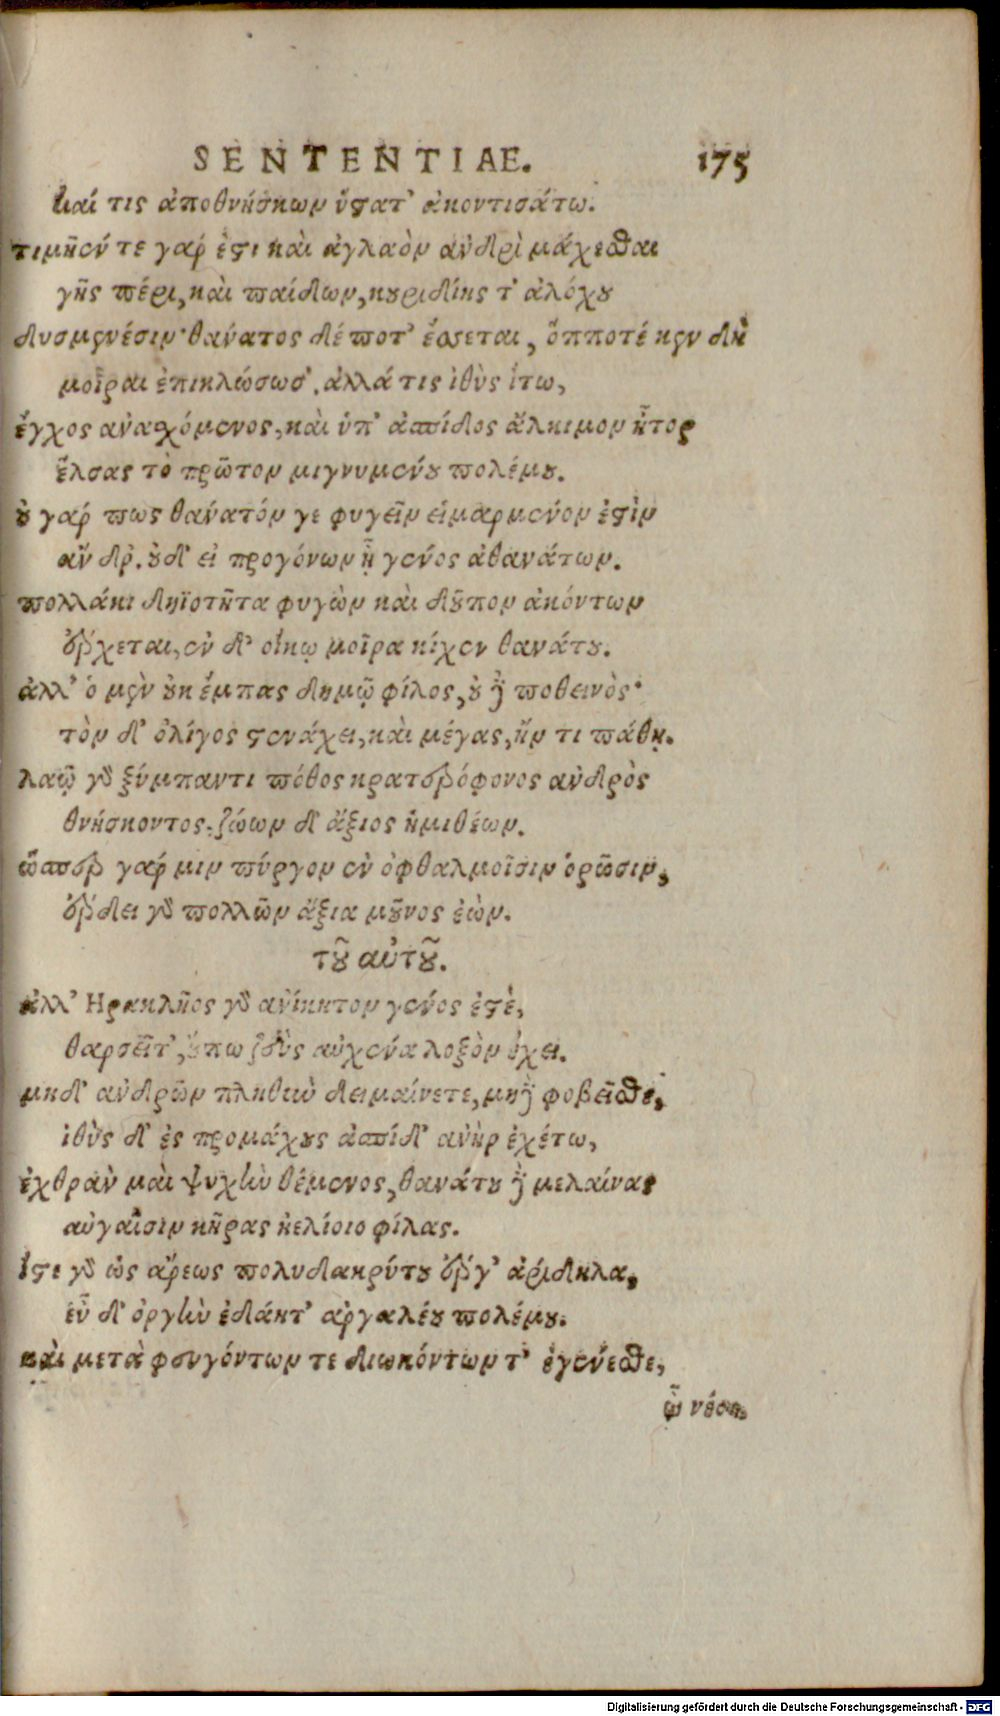 SENTENTIAE. 175
καί τις ἀποθνήσκων ὕστατ' ἀκοντισάτω.
τιμῆέν τε γάρ ἐστι καὶ ἀγλαὸν ἀνδρὶ μάχεσθαι
γῆς πέρι, καὶ παίδων, κουριδίης τ' ἀλόχου
δυσμενέσιν· θάνατος δέ ποτ' ἔσσεται, ὅπποτέ κεν δὴ
μοῖραι ἐπικλώσωσ'. ἀλλά τις ἰθὺς ἴτω,
ἔγχος ἀναχόμενος, καὶ ὑπ' ἀσπίδος ἄλκιμον ἦτορ
ἔλσας τὸ πρῶτον μιγνυμένου πολέμου.
οὐ γάρ πως θάνατόν γε φυγεῖν εἱμαρμένον ἐστὶν
ἄνδρ'. οὐδ' εἰ προγόνων ᾖ γένος ἀθανάτων.
πολλάκι δηϊοτῆτα φυγὼν καὶ δοῦπον ἀκόντων
ἔρχεται, ἐν δ' οἴκῳ μοῖρα κίχεν θανάτου.
ἀλλ' ὁ μὲν οὐκ ἔμπας δημῷ φίλος, οὐδὲ ποθεινὸς·
τὸν δ' ὀλίγος στενάχει, καὶ μέγας, ἤν τι πάθῃ.
λαῷ γὰρ ξύμπαντι πόθος κρατερόφρονος ἀνδρὸς
θνήσκοντος. ζώων δ' ἄξιος ἡμιθέων.
ὥσπερ γάρ μιν πύργον ἐν ὀφθαλμοῖσιν ὁρῶσιν,
ἔρδει γὰρ πολλῶν ἄξια μοῦνος ἐών.
τοῦ αὐτοῦ.
ἀλλ' Ἡρακλῆος γὰρ ἀνίκητον γένος ἐστὲ,
θαρσεῖτ', οὔπω ζεὺς αὐχένα λοξὸν ἔχει.
μηδ' ἀνδρῶν πληθὺν δειμαίνετε, μηδὲ φοβεῖσθε,
ἰθὺς δ' ἐς προμάχους ἀσπίδ' ἀνὴρ ἐχέτω,
ἐχθρὰν μὰν ψυχὴν θέμενος, θανάτου δὲ μελαίνας
αὐγαῖσιν κῆρας ἠελίοιο φίλας.
ἴστε γὰρ ὡς ἄρεως πολυδακρύτου ἔργ' ἀρίδηλα,
εὖ δ' ὀργὴν ἐδάητ' ἀργαλέου πολέμου.
καὶ μετὰ φευγόντων τε διωκόντων τ' ἐγένεσθε,
ὦ νέοι,
Digitalisierung gefördert durch die Deutsche Forschungsgemeinschaft - DFG